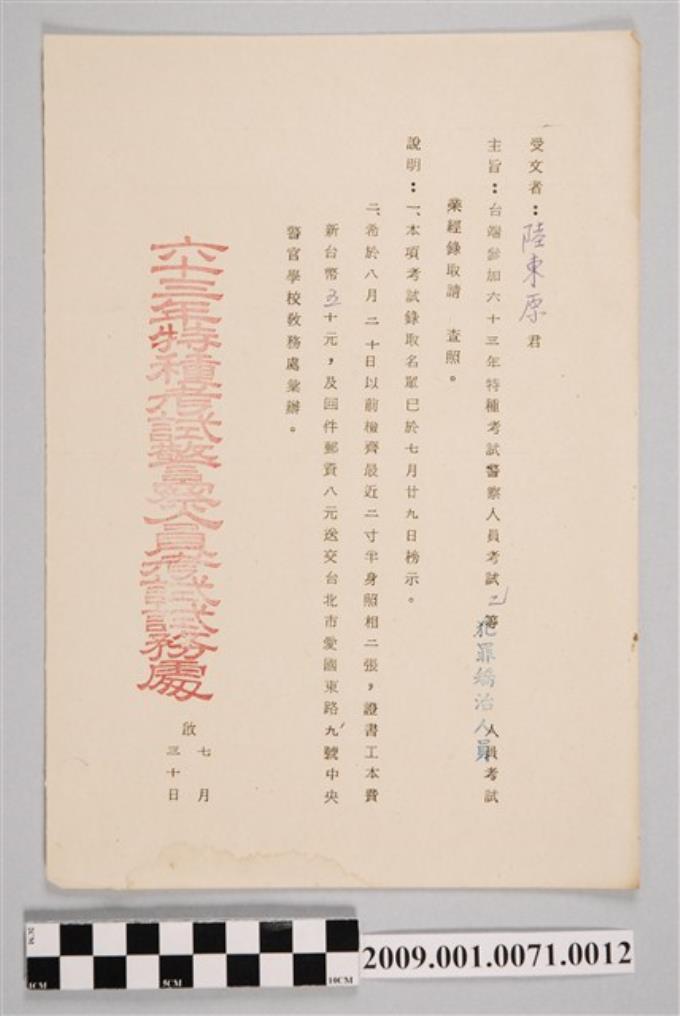 受文者：陸東原君
主旨：台端參加六十三年特種考試警察人員考試乙等犯罪矯治人員人員考試
業經錄取請　查照。
說明：一、本項考試錄取名單已於七月廿九日榜示。
二、希於八月二十日以前檢齊最近二寸半身照相二張，證書工本費
新台幣五十元，及回件郵資八元送交台北市愛國東路九號中央
警官學校教務處彙辦。
六十三年特種考試警察人員考試試務處
啟七月
三十日
1CM
2CM
5CM
10CM
2009.001.0071.0012